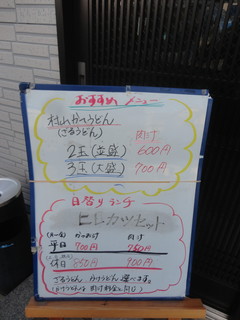 おすすめ メニュー
村山かてうどん
(ざるうどん) 肉汁
2玉(並盛) 600円
3玉(大盛) 700円
日替りランチ
ヒレカツセット
かけ 肉汁
平日 700円 750円
休日 850円 900円
ざるうどん、かけうどん選べます。